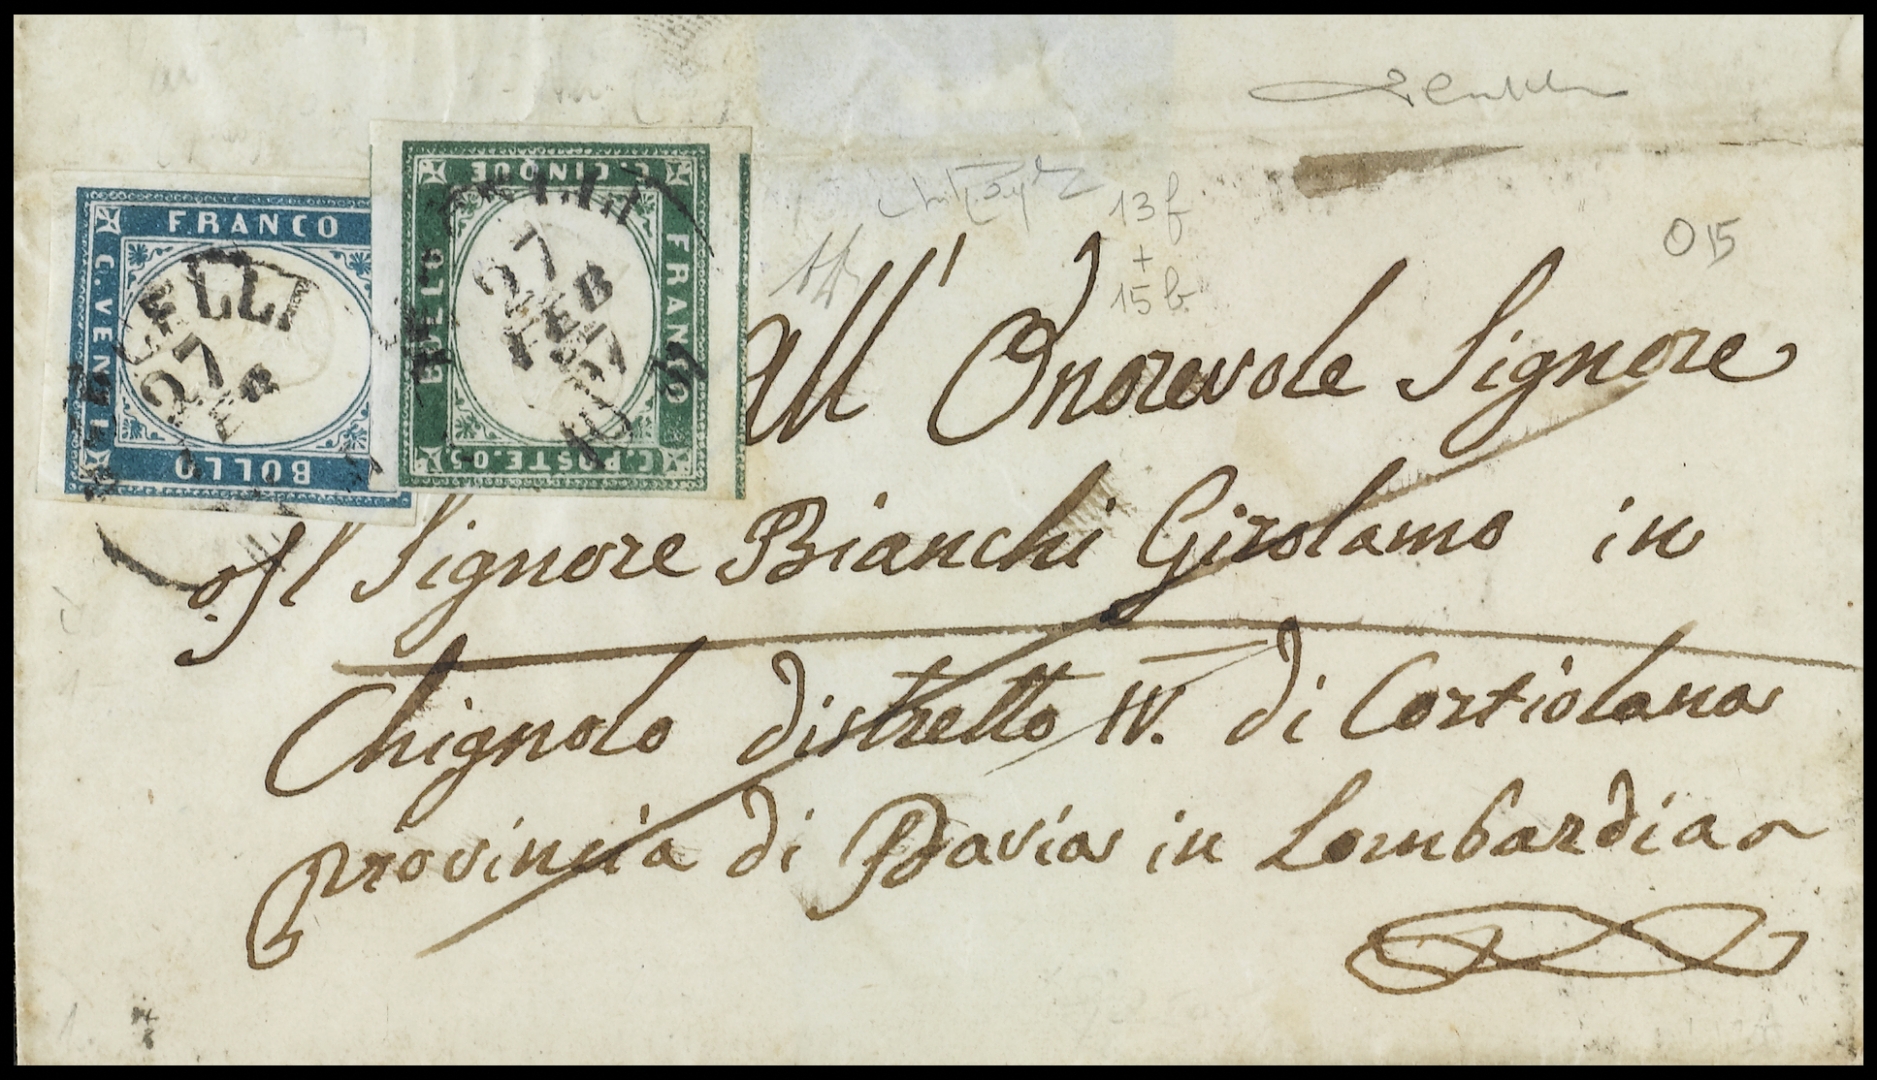 13 f
+
15 b
O 15
FRANCO
C. VENTI
BOLLO
C. CINQUE
FRANCO
BOLLO
C. POSTE. 05
CELLI
27
FEB
VERCELLI
27
FEB
57
all' Onorevole Signore
Il Signore Bianchi Girolamo in
Chignolo distretto IV. di Cortiolana
provincia di Pavia in Lombardia